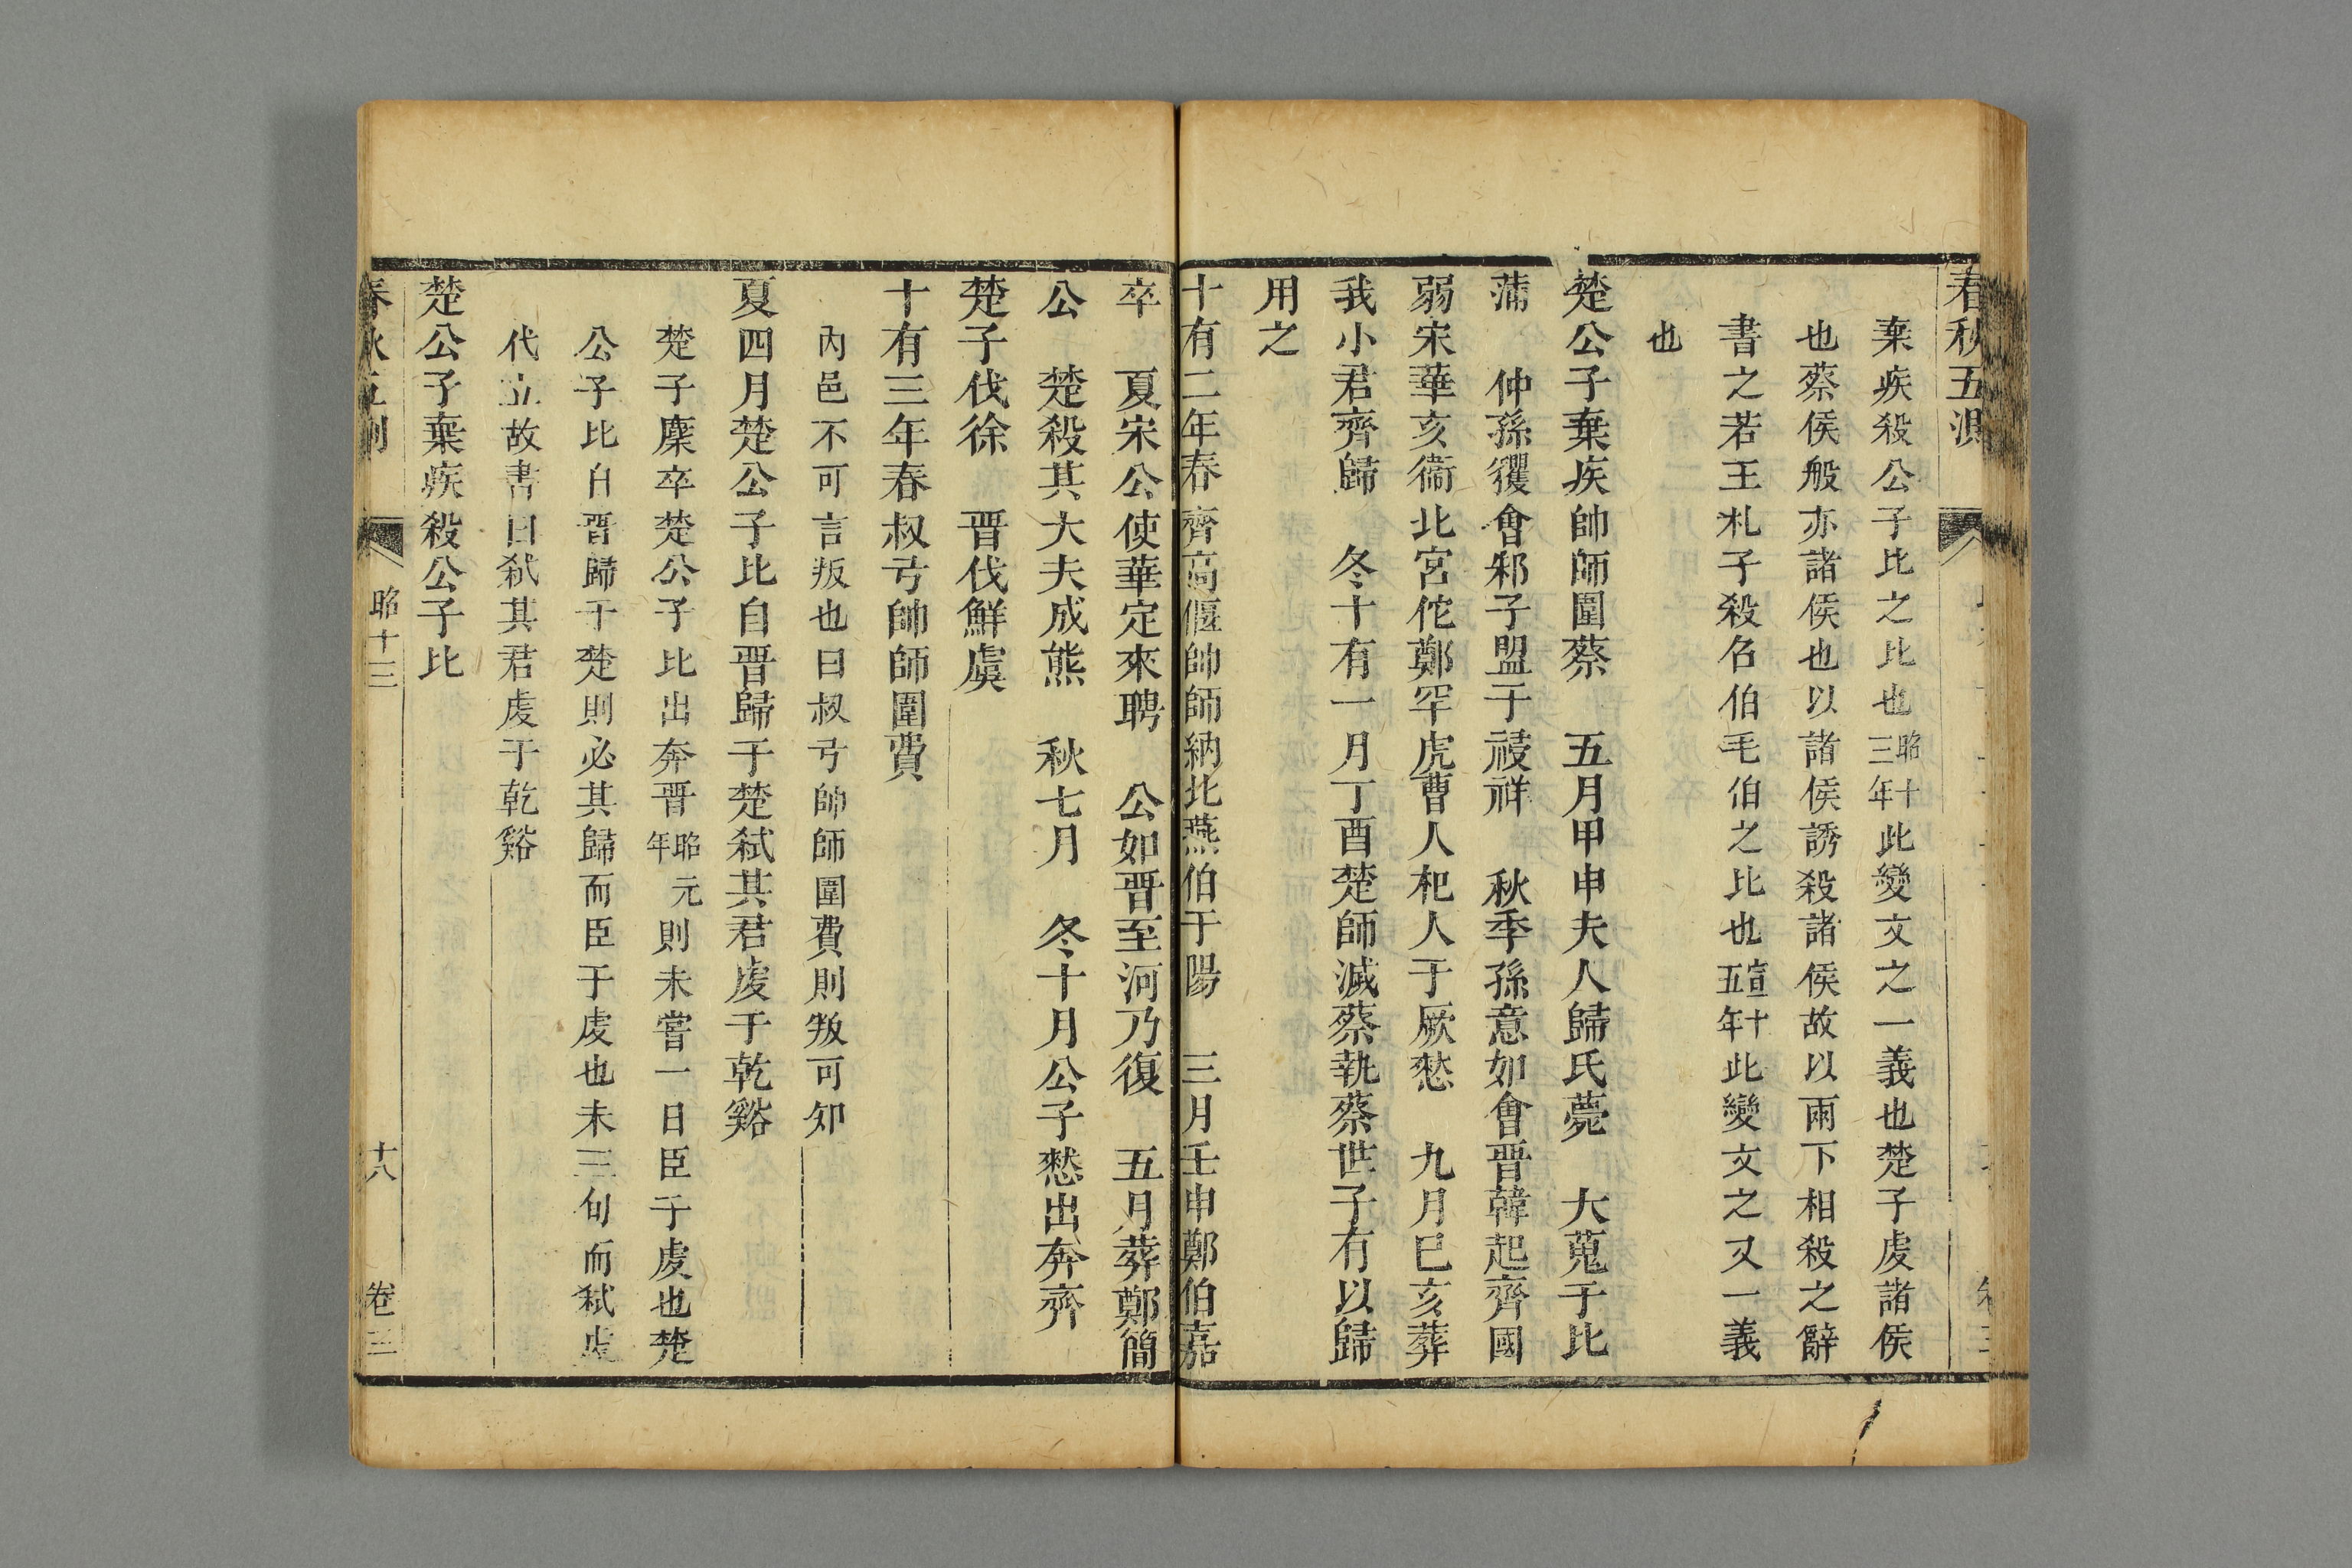 春秋五測
棄疾殺公子比之比也昭十三年此變文之一義也楚子虔諸侯
也蔡侯般亦諸侯也以諸侯誘殺諸侯故以兩下相殺之辭
書之若王札子殺召伯毛伯之比也宣十五年此變文之又一義
也
楚公子棄疾帥師圍蔡　五月甲申夫人歸氏薨　大蒐于比
蒲　仲孫貜會邾子盟于祲祥　秋季孫意如會晉韓起齊國
弱宋華亥衞北宮佗鄭罕虎曹人杞人于厥憖　九月己亥葬
我小君齊歸　冬十有一月丁酉楚師滅蔡執蔡世子有以歸
用之
十有二年春齊高偃帥師納北燕伯于陽　三月壬申鄭伯嘉
卒　夏宋公使華定來聘　公如晉至河乃復　五月葬鄭簡
公　楚殺其大夫成熊　秋七月　冬十月公子憖出奔齊
楚子伐徐　晉伐鮮虞
十有三年春叔弓帥師圍費
內邑不可言叛也曰叔弓帥師圍費則叛可知
夏四月楚公子比自晉歸于楚弒其君虔于乾谿
楚子麇卒楚公子比出奔晉昭元年則未嘗一日臣于虔也楚
公子比自晉歸于楚則必其歸而臣于虔也未三旬而弒虔
代立故書曰弒其君虔于乾谿
楚公子棄疾殺公子比
春秋五測　昭十三　十八　卷三